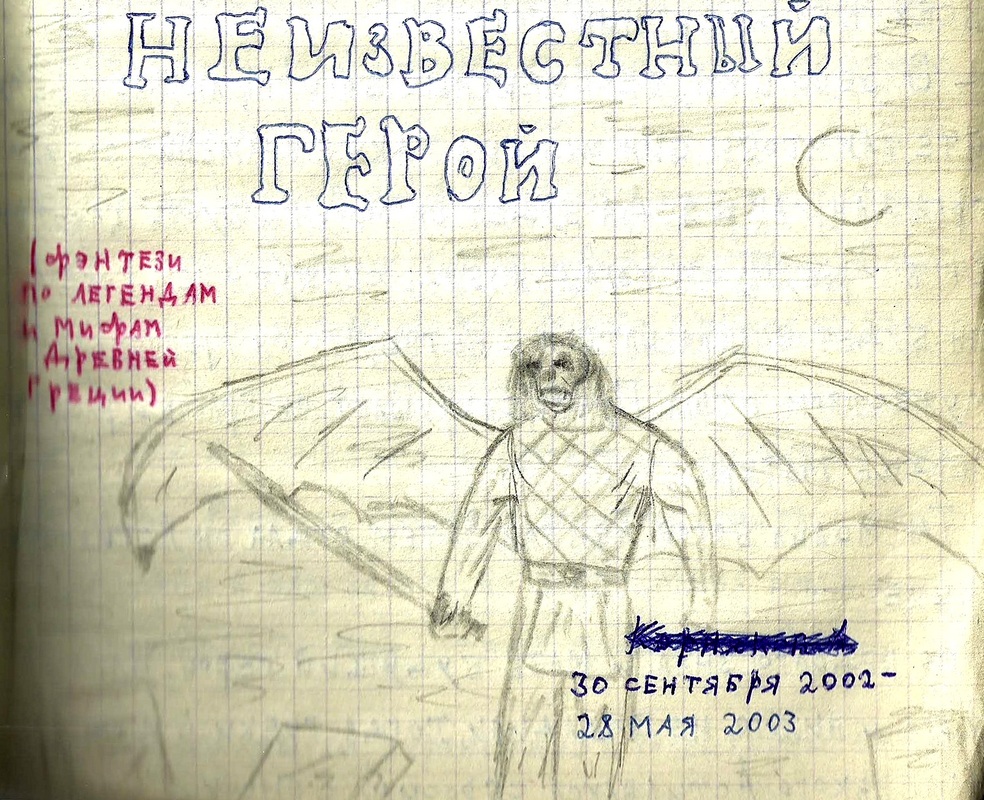 НЕИЗВЕСТНЫЙ
ГЕРОЙ
(ФЭНТЕЗИ
ПО ЛЕГЕНДАМ
И МИФАМ
ДРЕВНЕЙ
ГРЕЦИИ)
30 СЕНТЯБРЯ 2002-
28 МАЯ 2003